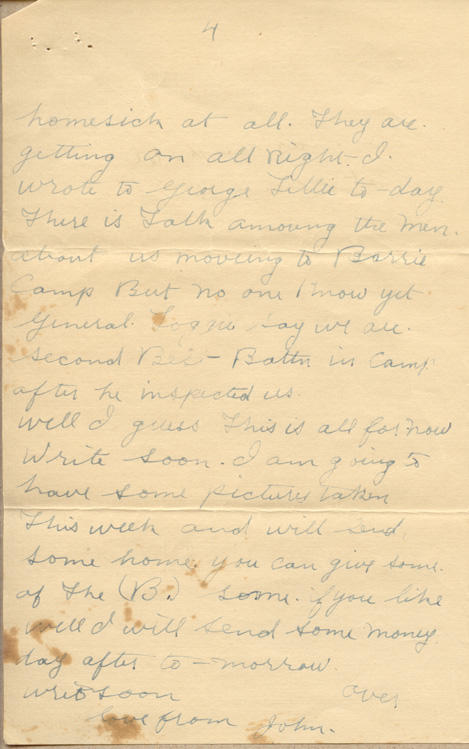 4
homesick at all. They are.
getting on all right. I.
wrote to George Lillie to-day.
There is Talk amoung the men.
about us moveing to Barrie
Camp But no one Know yet
General. Logie say we are.
second Bes- Battn in Camp
after he inspected us.
well I guess This is all for now
Write soon. I am going to
have some pictures taken
This week and will send
some home. you can give some.
of The (B.) some. if you like
well I will send some money.
day after to-morrow.
writ soon over
love from John.